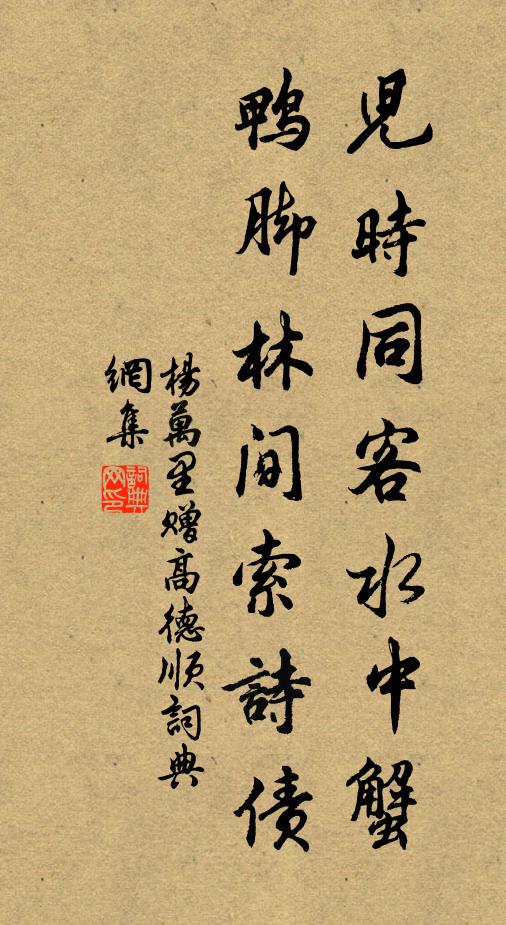 兒時同客水中蟹
鴨脚林間索詩債
楊萬里贈高德順詞典
網集
詞典
网印